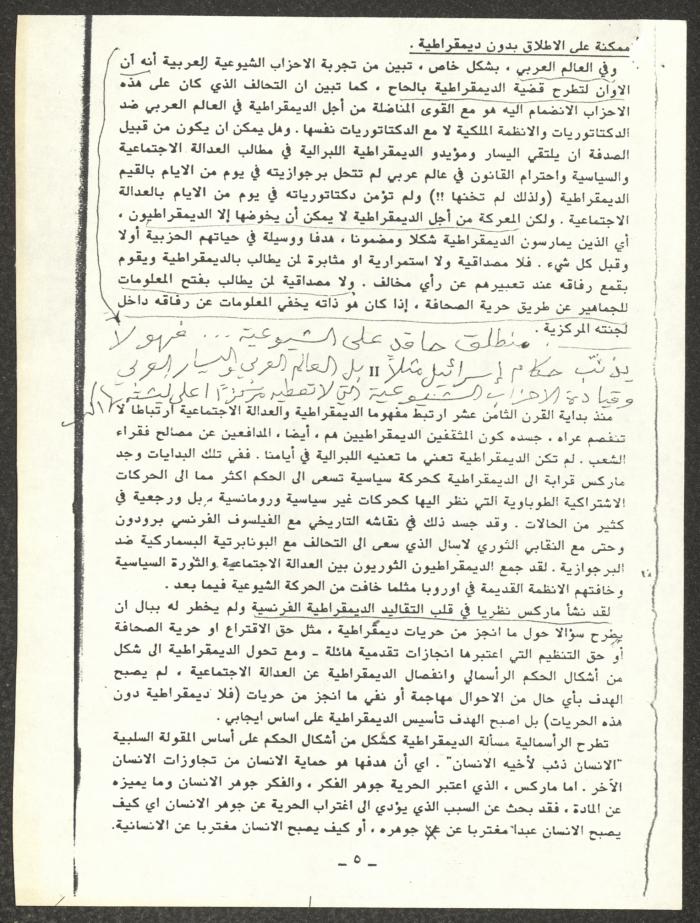 ممكنة على الاطلاق بدون ديمقراطية .
وفي العالم العربي ، بشكل خاص ، تبين من تجربة الاحزاب الشيوعية العربية أنه آن
الاوان لتطرح قضية الديمقراطية بالحاح ، كما تبين ان التحالف الذي كان على هذه
الاحزاب الانضمام اليه هو مع القوى المناضلة من أجل الديمقراطية في العالم العربي ضد
الدكتاتوريات والانظمة الملكية لا مع الدكتاتوريات نفسها . وهل يمكن أن يكون من قبيل
الصدفة ان يلتقي اليسار ومؤيدو الديمقراطية اللبرالية في مطالب العدالة الاجتماعية
والسياسية واحترام القانون في عالم عربي لم تتحل برجوازيته في يوم من الايام بالقيم
الديمقراطية (ولذلك لم تخنها !!) ولم تؤمن دكتاتورياته في يوم من الايام بالعدالة
الاجتماعية . ولكن المعركة من أجل الديمقراطية لا يمكن أن يخوضها إلا الديمقراطيون ،
أي الذين يمارسون الديمقراطية شكلا ومضمونا ، هدفا ووسيلة في حياتهم الحزبية أولا
وقبل كل شيء . فلا مصداقية ولا استمرارية او مثابرة لمن يطالب بالديمقراطية ويقوم
بقمع رفاقه عند تعبيرهم عن رأي مخالف . ولا مصداقية لمن يطالب بفتح المعلومات
للجماهير عن طريق حرية الصحافة ، إذا كان هو ذاته يخفي المعلومات عن رفاقه داخل
لجنته المركزية .
منطلق حاقد على الشيوعية ... فهو لا
يذنّب حكام إسرائيل مثلاً بل العالم العربي واليسار العربي
II
وقيادة الاحزاب الشيوعية التي لا تعطيه مركزًا أعلى
منذ بداية القرن الثامن عشر ارتبط مفهوما الديمقراطية والعدالة الاجتماعية ارتباطا لا
تنفصم عراه ، جسده كون المثقفين الديمقراطيين هم ، أيضا ، المدافعين عن مصالح فقراء
الشعب . لم تكن الديمقراطية تعني ما تعنيه اللبرالية في أيامنا . ففي تلك البدايات وجد
ماركس قرابة الى الديمقراطية كحركة سياسية تسعى الى الحكم اكثر مما الى الحركات
الاشتراكية الطوباوية التي نظر اليها كحركات غير سياسية ورومانسية ، بل ورجعية في
كثير من الحالات . وقد جسد ذلك في نقاشه التاريخي مع الفيلسوف الفرنسي برودون
وحتى مع النقابي الثوري لاسال الذي سعى الى التحالف مع البونابرتية البسماركية ضد
البرجوازية . لقد جمع الديمقراطيون الثوريون بين العدالة الاجتماعية والثورة السياسية
وخافتهم الانظمة القديمة في اوروبا مثلما خافت من الحركة الشيوعية فيما بعد .
لقد نشأ ماركس نظريا في قلب التقاليد الديمقراطية الفرنسية ولم يخطر له ببال ان
يطرح سؤالا حول ما انجز من حريات ديمقراطية ، مثل حق الاقتراع او حرية الصحافة
أو حق التنظيم التي اعتبرها انجازات تقدمية هائلة ـ ومع تحول الديمقراطية الى شكل
من أشكال الحكم الرأسمالي وانفصال الديمقراطية عن العدالة الاجتماعية ، لم يصبح
الهدف بأي حال من الاحوال مهاجمة أو نفي ما انجز من حريات (فلا ديمقراطية دون
هذه الحريات) بل اصبح الهدف تأسيس الديمقراطية على اساس ايجابي .
تطرح الرأسمالية مسألة الديمقراطية كشكل من أشكال الحكم على أساس المقولة السلبية
"الانسان ذئب لأخيه الانسان" . اي أن هدفها هو حماية الانسان من تجاوزات الانسان
الآخر . اما ماركس ، الذي اعتبر الحرية جوهر الفكر ، والفكر جوهر الانسان وما يميزه
عن المادة ، فقد بحث عن السبب الذي يؤدي الى اغتراب الحرية عن جوهر الانسان اي كيف
يصبح الانسان عبدا مغتربا عن جوهره ، أو كيف يصبح الانسان مغتربا عن الانسانية.
ـ ٥ ـ